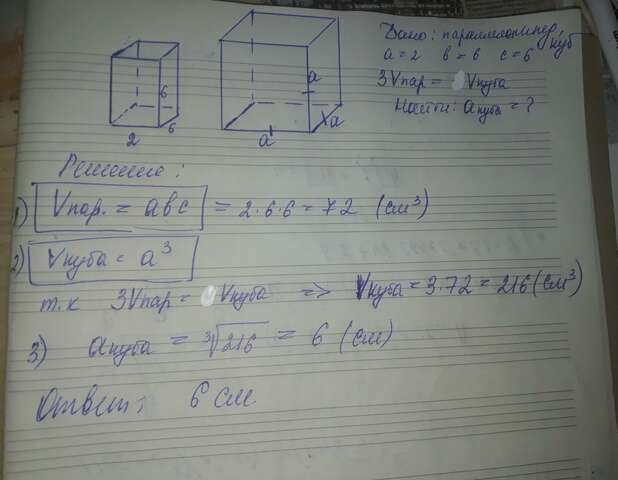 Дано: параллелепипед, куб
a=2 b=6 c=6
3Vпар = Vкуба
Найти: aкуба = ?
6
6
2
a
a
a
Решение:
1) Vпар. = abc = 2·6·6 = 72 (см³)
2) Vкуба = a³
т.к 3Vпар = Vкуба => Vкуба = 3·72 = 216 (см³)
3) aкуба = ³√216 = 6 (см)
Ответ: 6 см